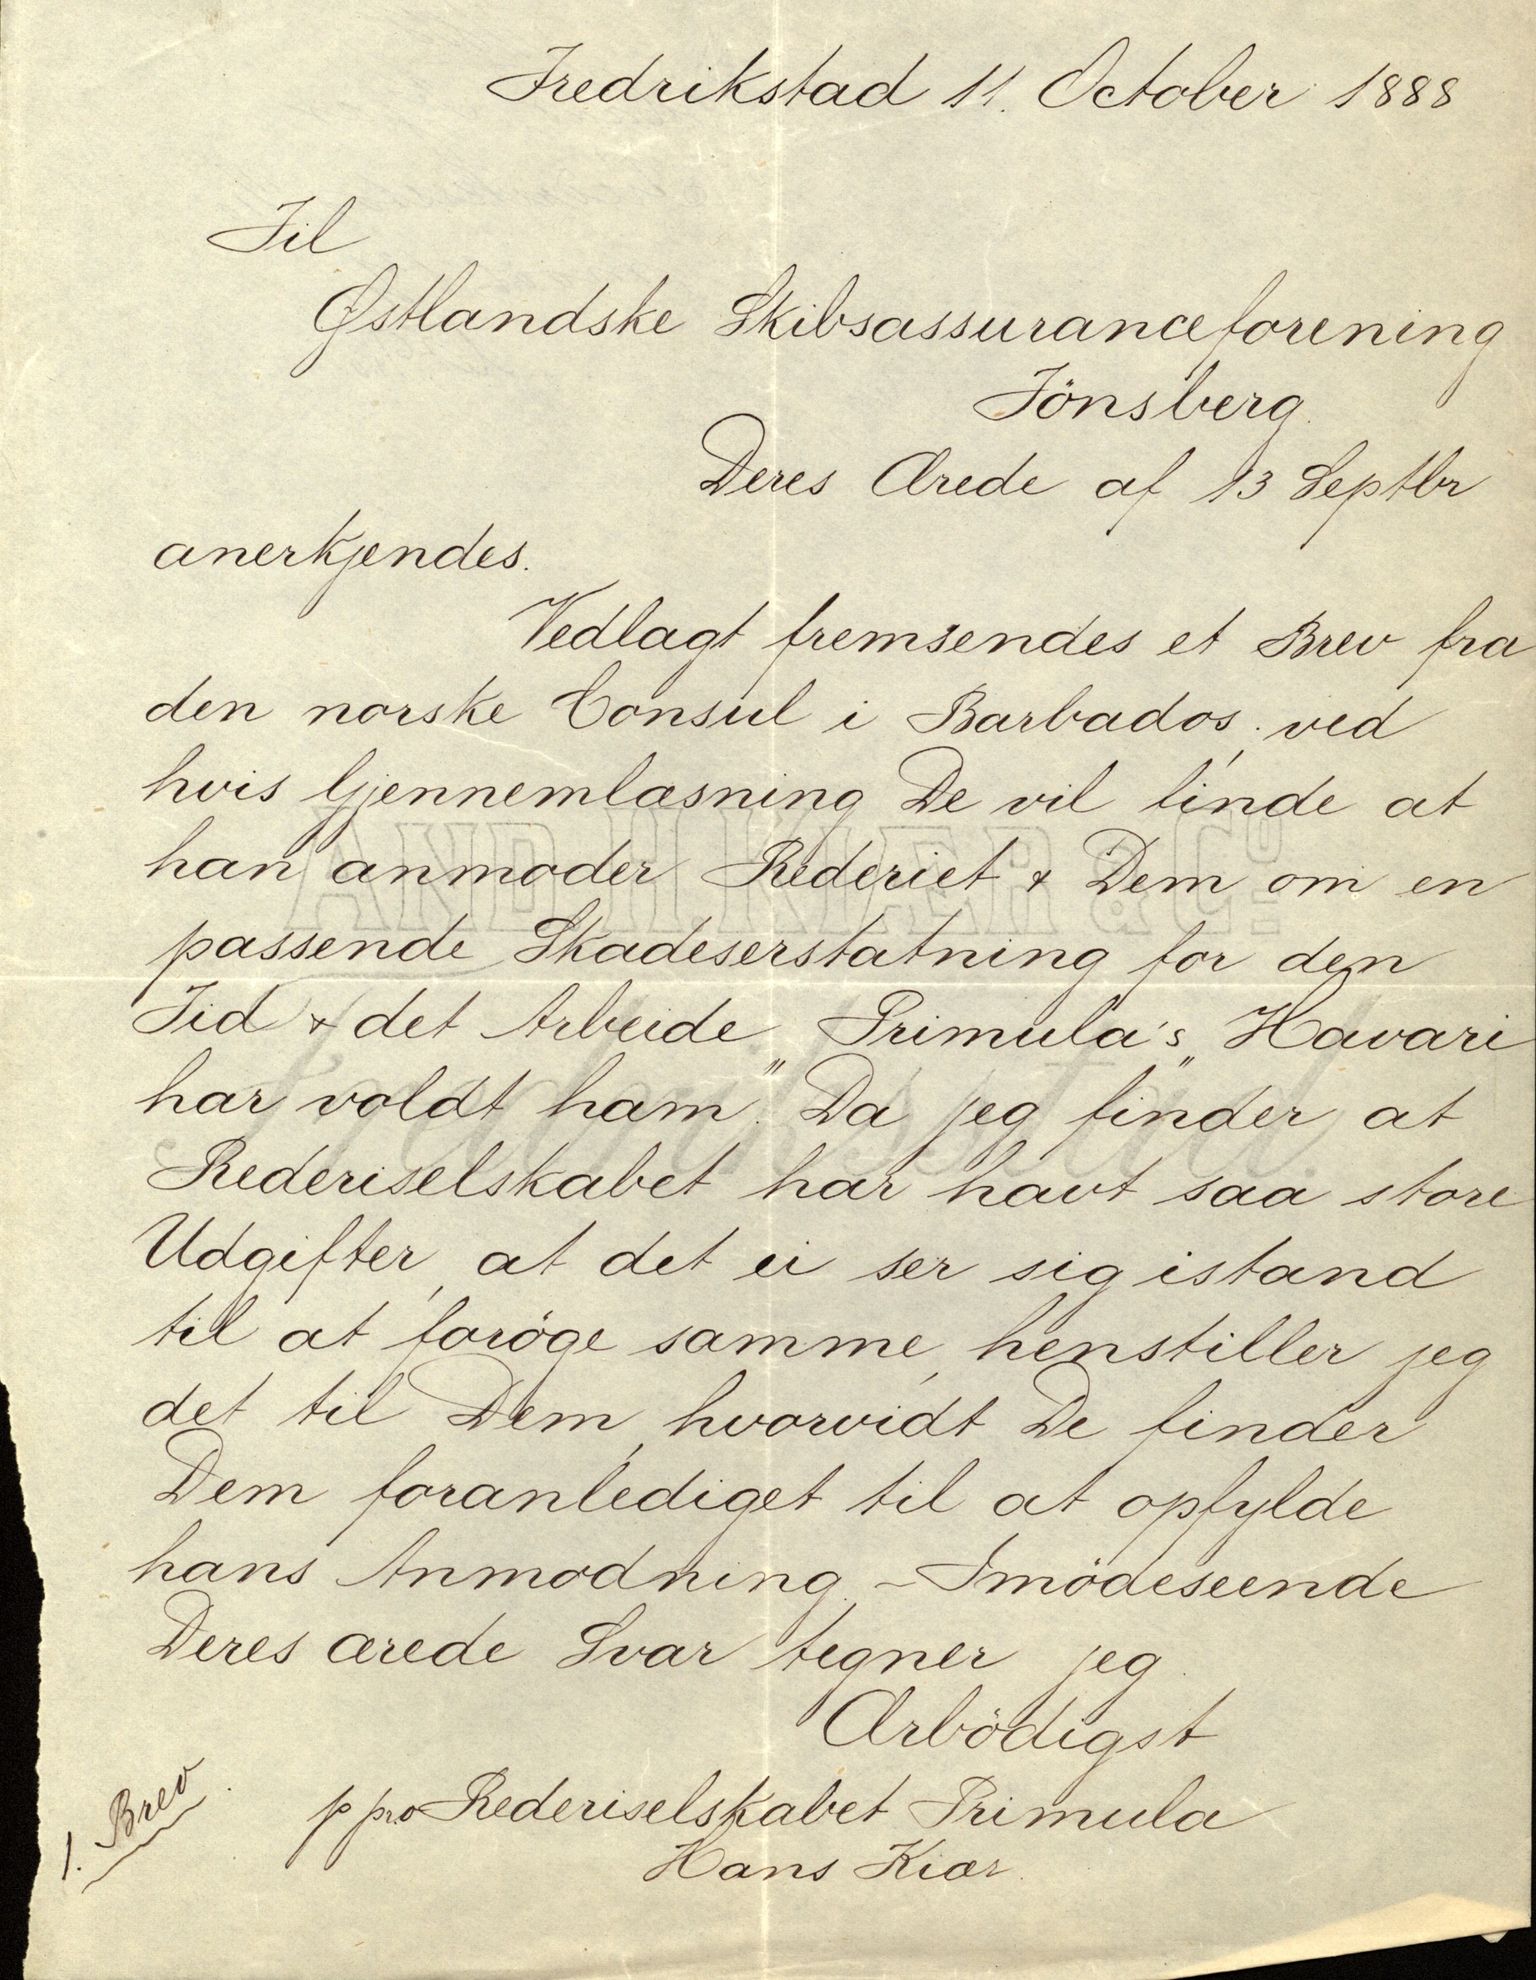 Fredrikstad 11. October 1888
Til
Østlandske Skibsassuranceforening
Tönsberg.
Deres Ærede af 13 Septbr
anerkjendes.
Vedlagt fremsendes et Brev fra
den norske Consul i Barbados, ved
hvis Gjennemlæsning De vil finde at
han anmoder Rederiet & Dem om en
passende Skadeserstatning for den
Tid & det Arbeide „Primula's„ Havari
har voldt ham. Da jeg finder at
Rederiselskabet har havt saa store
Udgifter, at det ei ser sig istand
til at foröge samme, henstiller jeg
det til Dem, hvorvidt De finder
Dem foranlediget til at opfylde
hans Anmodning. – Imödeseende
Deres ærede Svar tegner jeg.
Ærbödigst
p pro Rederiselskabet Primula
Hans Kiær.
1. Brev
AND. H. KIÆR & Co.
Fredrikstad.